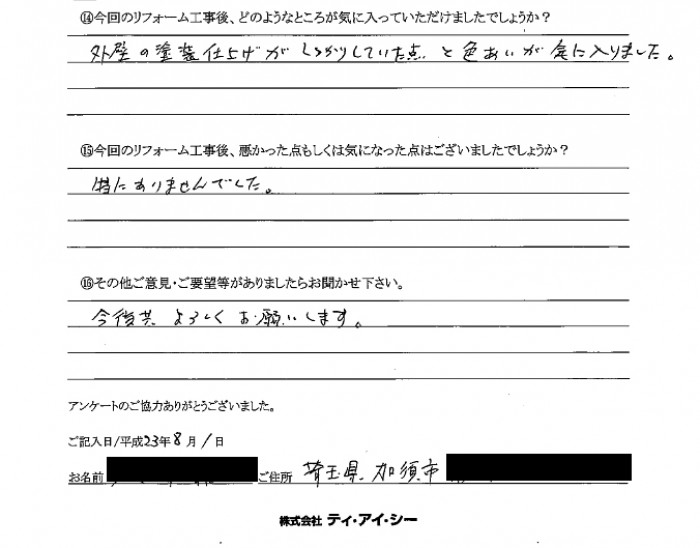 ⑭今回のリフォーム工事後、どのようなところが気に入っていただけましたでしょうか？
外壁の塗装仕上げがしっかりしていた点と色あいが気に入りました。
⑮今回のリフォーム工事後、悪かった点もしくは気になった点はございましたでしょうか？
特にありませんでした。
⑯その他ご意見・ご要望等がありましたらお聞かせ下さい。
今後共よろしくお願いします。
アンケートのご協力ありがとうございました。
ご記入日/平成23年8月1日
お名前 ご住所 埼玉県 加須市
株式会社 ティ・アイ・シー